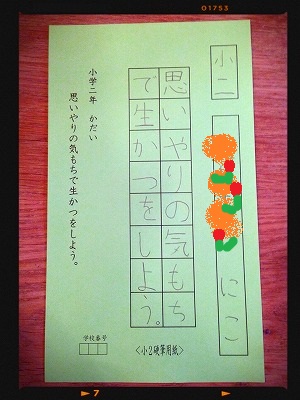 01753
小二
にこ
思いやりの気もち
で生かつをしよう。
小学二年　かだい
思いやりの気もちで生かつをしよう。
学校番号
＜小2硬筆用紙＞
7